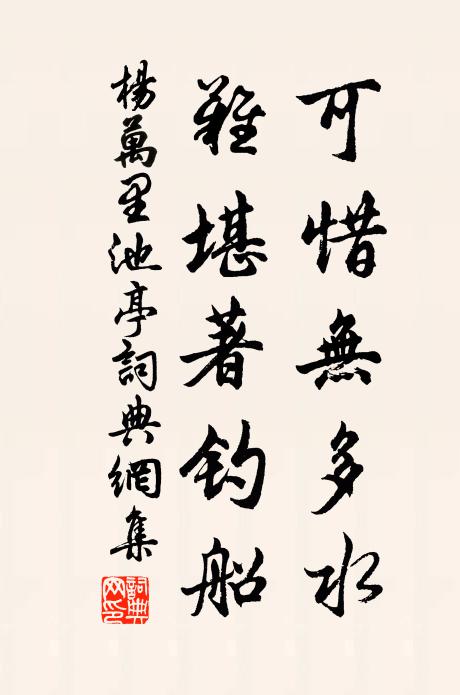 可惜無多水
難堪著釣船
楊萬里池亭詞典網集
詞典网印